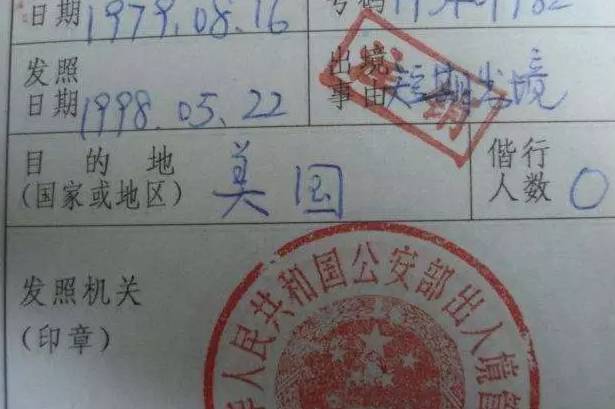 日期 1979.08.16 号码
发照日期 1998.05.22 出境事由 短期出境
目的地(国家或地区) 美国 偕行人数 0
发照机关(印章)
人民共和国公安部出入境管